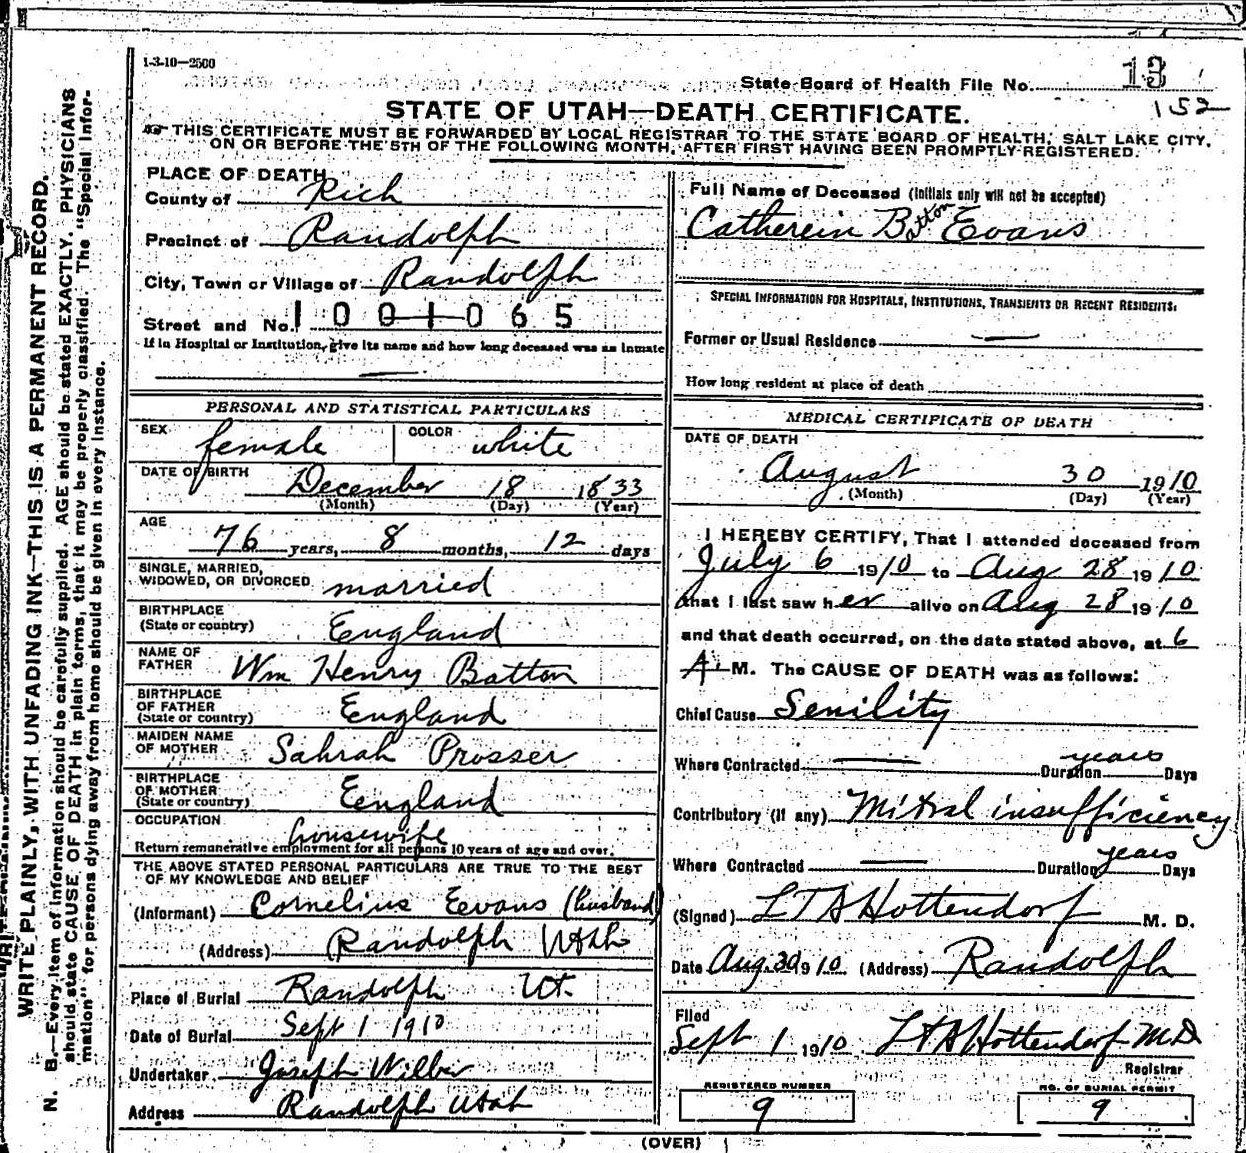 1-3-10—2500
State Board of Health File No. 13
152
STATE OF UTAH—DEATH CERTIFICATE.
THIS CERTIFICATE MUST BE FORWARDED BY LOCAL REGISTRAR TO THE STATE BOARD OF HEALTH, SALT LAKE CITY,
ON OR BEFORE THE 5TH OF THE FOLLOWING MONTH, AFTER FIRST HAVING BEEN PROMPTLY REGISTERED.
WRITE PLAINLY, WITH UNFADING INK—THIS IS A PERMANENT RECORD.
N. B.—Every item of information should be carefully supplied. AGE should be stated EXACTLY. PHYSICIANS
should state CAUSE OF DEATH in plain terms, that it may be properly classified. The "Special Infor-
mation" for persons dying away from home should be given in every instance.
PLACE OF DEATH
County of Rich
Precinct of Randolph
City, Town or Village of Randolph
Street and No. 1001065
If in Hospital or Institution, give its name and how long deceased was an inmate
—
PERSONAL AND STATISTICAL PARTICULARS
SEX female COLOR white
DATE OF BIRTH
December 18 1833
(Month) (Day) (Year)
AGE
76 years, 8 months, 12 days
SINGLE, MARRIED,
WIDOWED, OR DIVORCED married
BIRTHPLACE
(State or country) England
NAME OF
FATHER Wm Henry Batton
BIRTHPLACE
OF FATHER
(State or country) England
MAIDEN NAME
OF MOTHER Sahrah Prosser
BIRTHPLACE
OF MOTHER
(State or country) Eengland
OCCUPATION housewife
Return remunerative employment for all persons 10 years of age and over.
THE ABOVE STATED PERSONAL PARTICULARS ARE TRUE TO THE BEST
OF MY KNOWLEDGE AND BELIEF
(Informant) Cornelius Eevans (husband)
(Address) Randolph Utah
Place of Burial Randolph Ut.
Date of Burial Sept 1 1910
Undertaker Joseph Wilber
Address Randolph Utah
Full Name of Deceased (Initials only will not be accepted)
Catherein Batton Evans
SPECIAL INFORMATION FOR HOSPITALS, INSTITUTIONS, TRANSIENTS OR RECENT RESIDENTS:
Former or Usual Residence —
How long resident at place of death
MEDICAL CERTIFICATE OF DEATH
DATE OF DEATH
August 30 1910
(Month) (Day) (Year)
I HEREBY CERTIFY, That I attended deceased from
July 6 1910 to Aug 28 1910
that I last saw her alive on Aug 28 1910
and that death occurred, on the date stated above, at 6
A. M. The CAUSE OF DEATH was as follows:
Chief Cause Senility
Where Contracted — Duration years Days
Contributory (if any) Mitral insufficiency
Where Contracted — Duration years Days
(Signed) LTA Hottendorf M. D.
Date Aug. 30 1910 (Address) Randolph
Filed
Sept 1 1910 LTA Hottendorf M.D.
Registrar
REGISTERED NUMBER
9
NO. OF BURIAL PERMIT
9
(OVER)